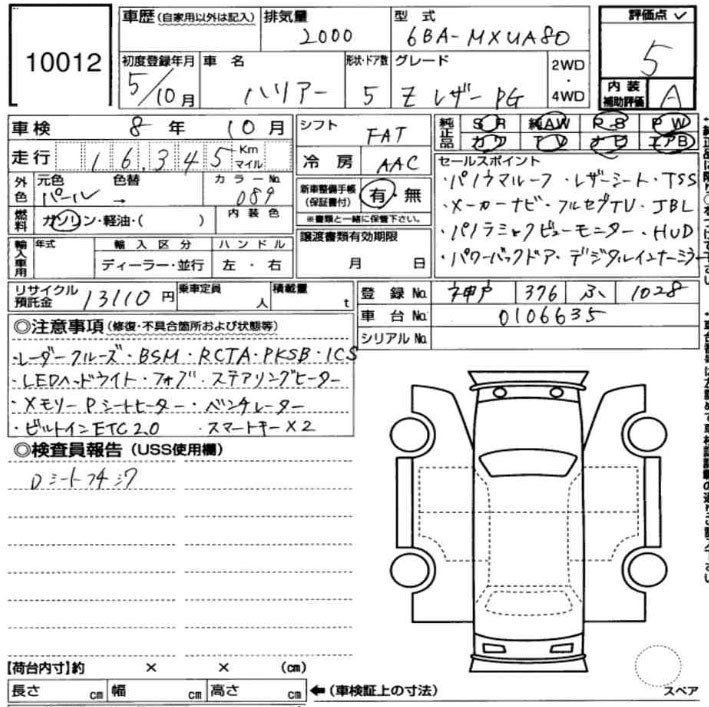 10012
車歴 (自家用以外は記入)
排気量 2000
型式 6BA-MXUA80
評価点 ✓ 5
初度登録年月 5/10月
車名 ハリアー
形状・ドア数 5
グレード Z レザー PG
2WD・4WD
内装補助評価 A
車検 8年 10月
シフト FAT
純正品 SR 純AW R-S PW
カワ TV ナビ エアB
走行 16345 Km マイル
冷房 AAC
外色 元色 パール 色替 → カラーNo. 089
新車整備手帳(保証書付) 有・無
※書類と一緒に保管下さい。
セールスポイント
・パノラマルーフ・レザーシート・TSS
・メーカーナビ・フルセグTV・JBL
・パノラミックビューモニター・HUD
・パワーバックドア・デジタルインナーミラー
燃料 ガソリン・軽油・( ) 内装色
輸入車用 年式 輸入区分 ハンドル
ディーラー・並行 左・右
譲渡書類有効期限
月 日
リサイクル預託金 13110円 乗車定員 人 積載量 t
登録No. 神戸 376 ふ 1028
車台No. 0106635
シリアルNo.
◎注意事項 (修復・不具合箇所および状態等)
・レーダークルーズ・BSM・RCTA・PKSB・ICS
・LEDヘッドライト・フォグ・ステアリングヒーター
・メモリーPシートヒーター・ベンチレーター
・ビルトインETC2.0 ・スマートキー×2
◎検査員報告 (USS使用欄)
Dシートフキジワ
【荷台内寸】約 × × (cm)
長さ cm 幅 cm 高さ cm ←(車検証上の寸法)
スペア